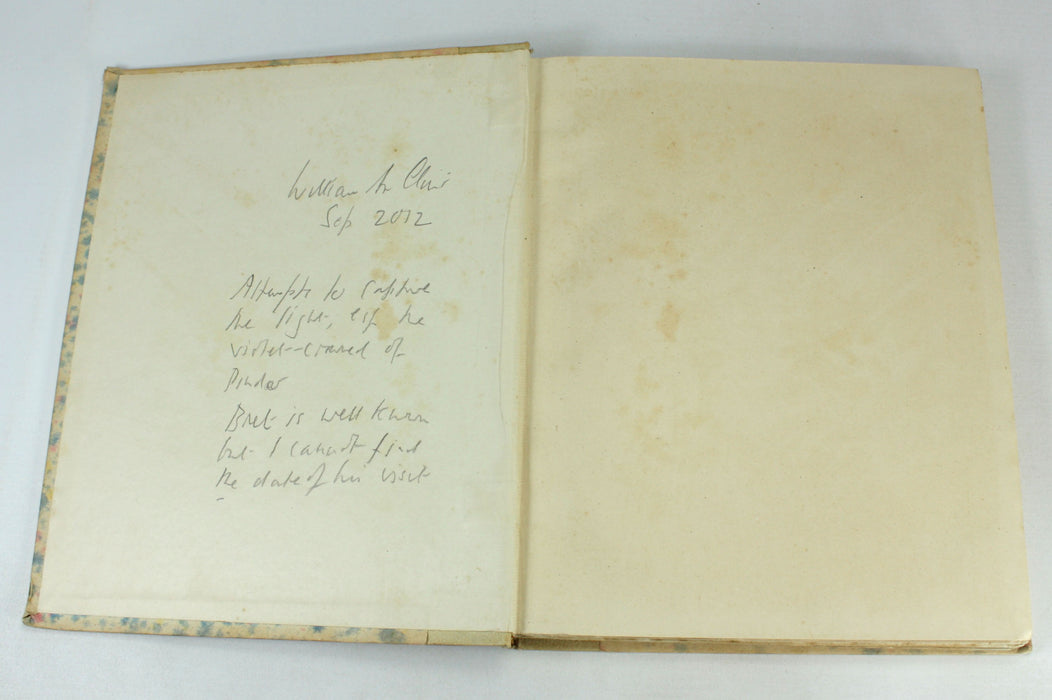 William
Sep 2012
Attempts to capture
the light, esp the
violet-crowned of
Pindar
Bret is well known
but I cannot find
the date of his visit